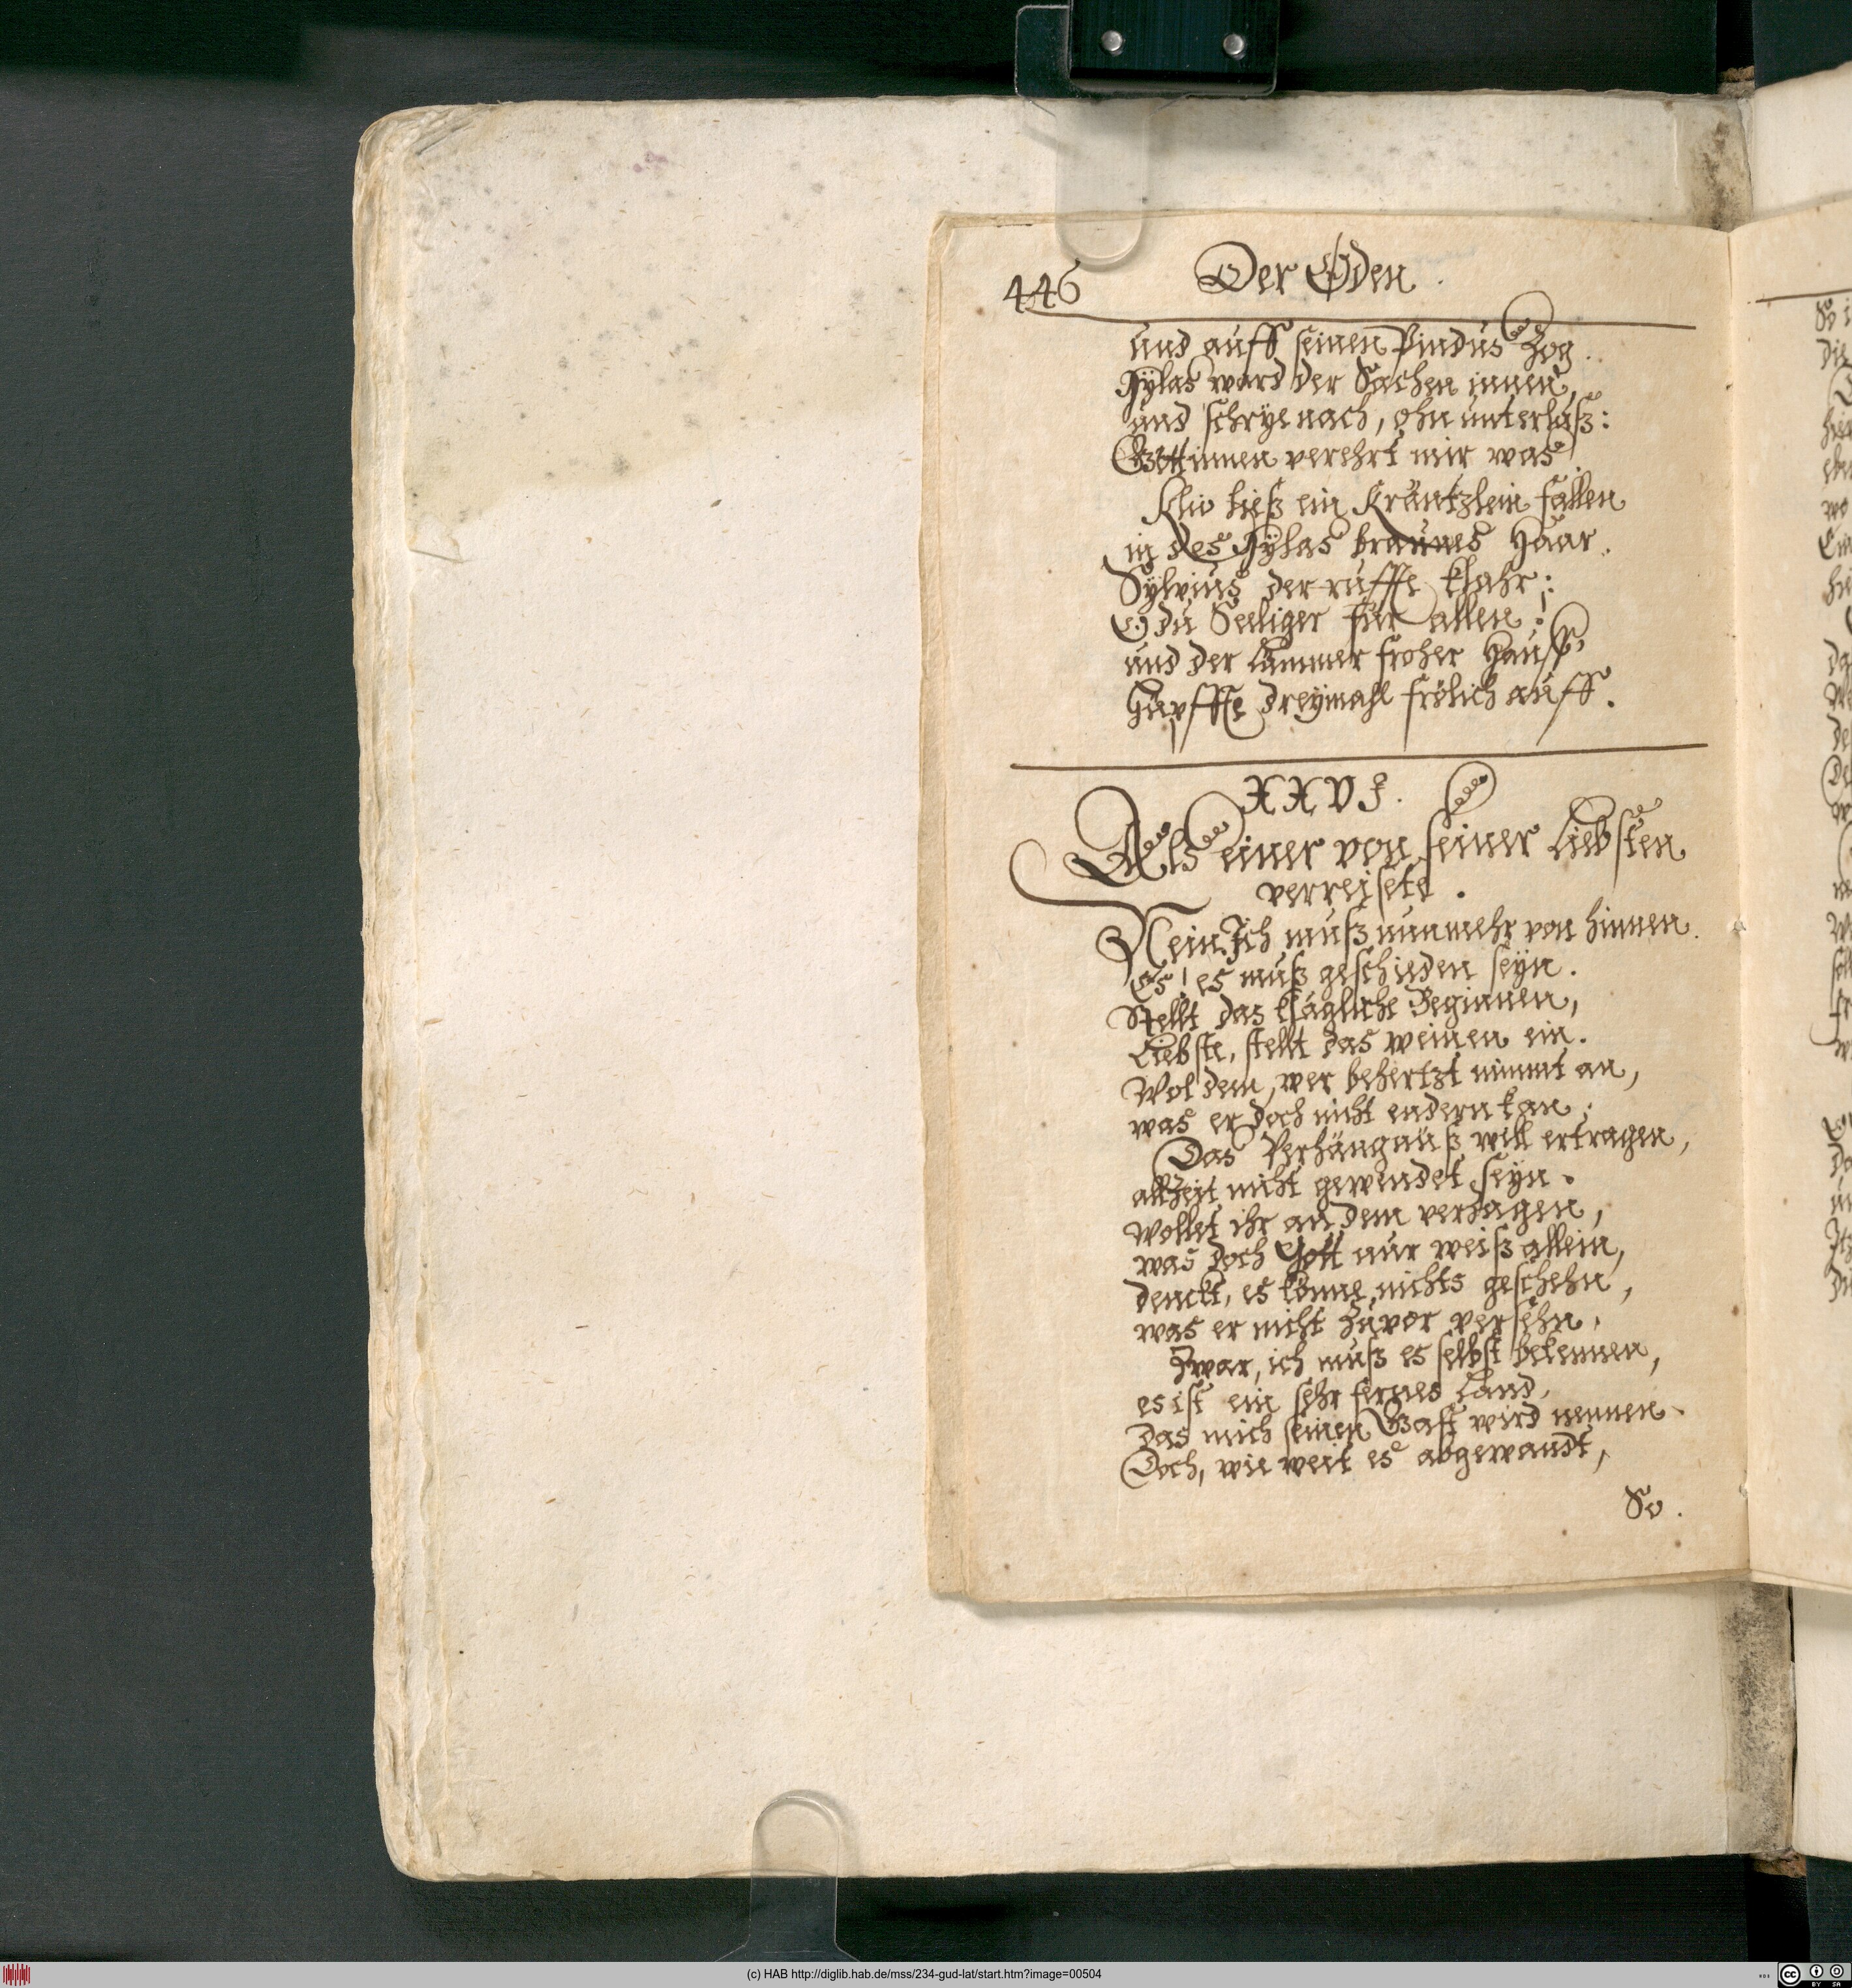 446 Der Oden.
und auff seinen Pindus Zog.
Hÿlas ward der Sachen innen,
und schrye nach, ohn unterlaß:
Göttinnen verehrt mir was.
Klio ließ ein Kräntzlein fallen
in des Hÿlas braunes Haar.
Sÿlvius der ruffte klahr:
O du Seeliger für allen!
und der Lämmer froher Hauff
Hüpffte dreÿmahl frölich auff.
XXVI.
Als einer von seiner Liebsten
verreisete.
Nein Ich muß nunmehr von hinnen.
Es! es muß geschieden seÿn.
Stellt das klägliche Beginnen,
Liebste, stellt das weinen ein.
Wol dem, wer behertzt nimmt an,
was er doch nicht endern kan.
Das Verhängnüß will ertragen,
allzeit nicht gewendet seÿn.
Wollet ihr an dem verzagen,
was doch Gott nur weiß allein,
denckt, es könne nichts geschehn,
was er nicht zuvor versehn.
Zwar, ich muß es selbst bekennen,
es ist ein sehr fernes Land,
das mich seinen Gast wird nennen.
Doch, wie weit es abgewandt,
So.
(c) HAB http://diglib.hab.de/mss/234-gud-lat/start.htm?image=00504